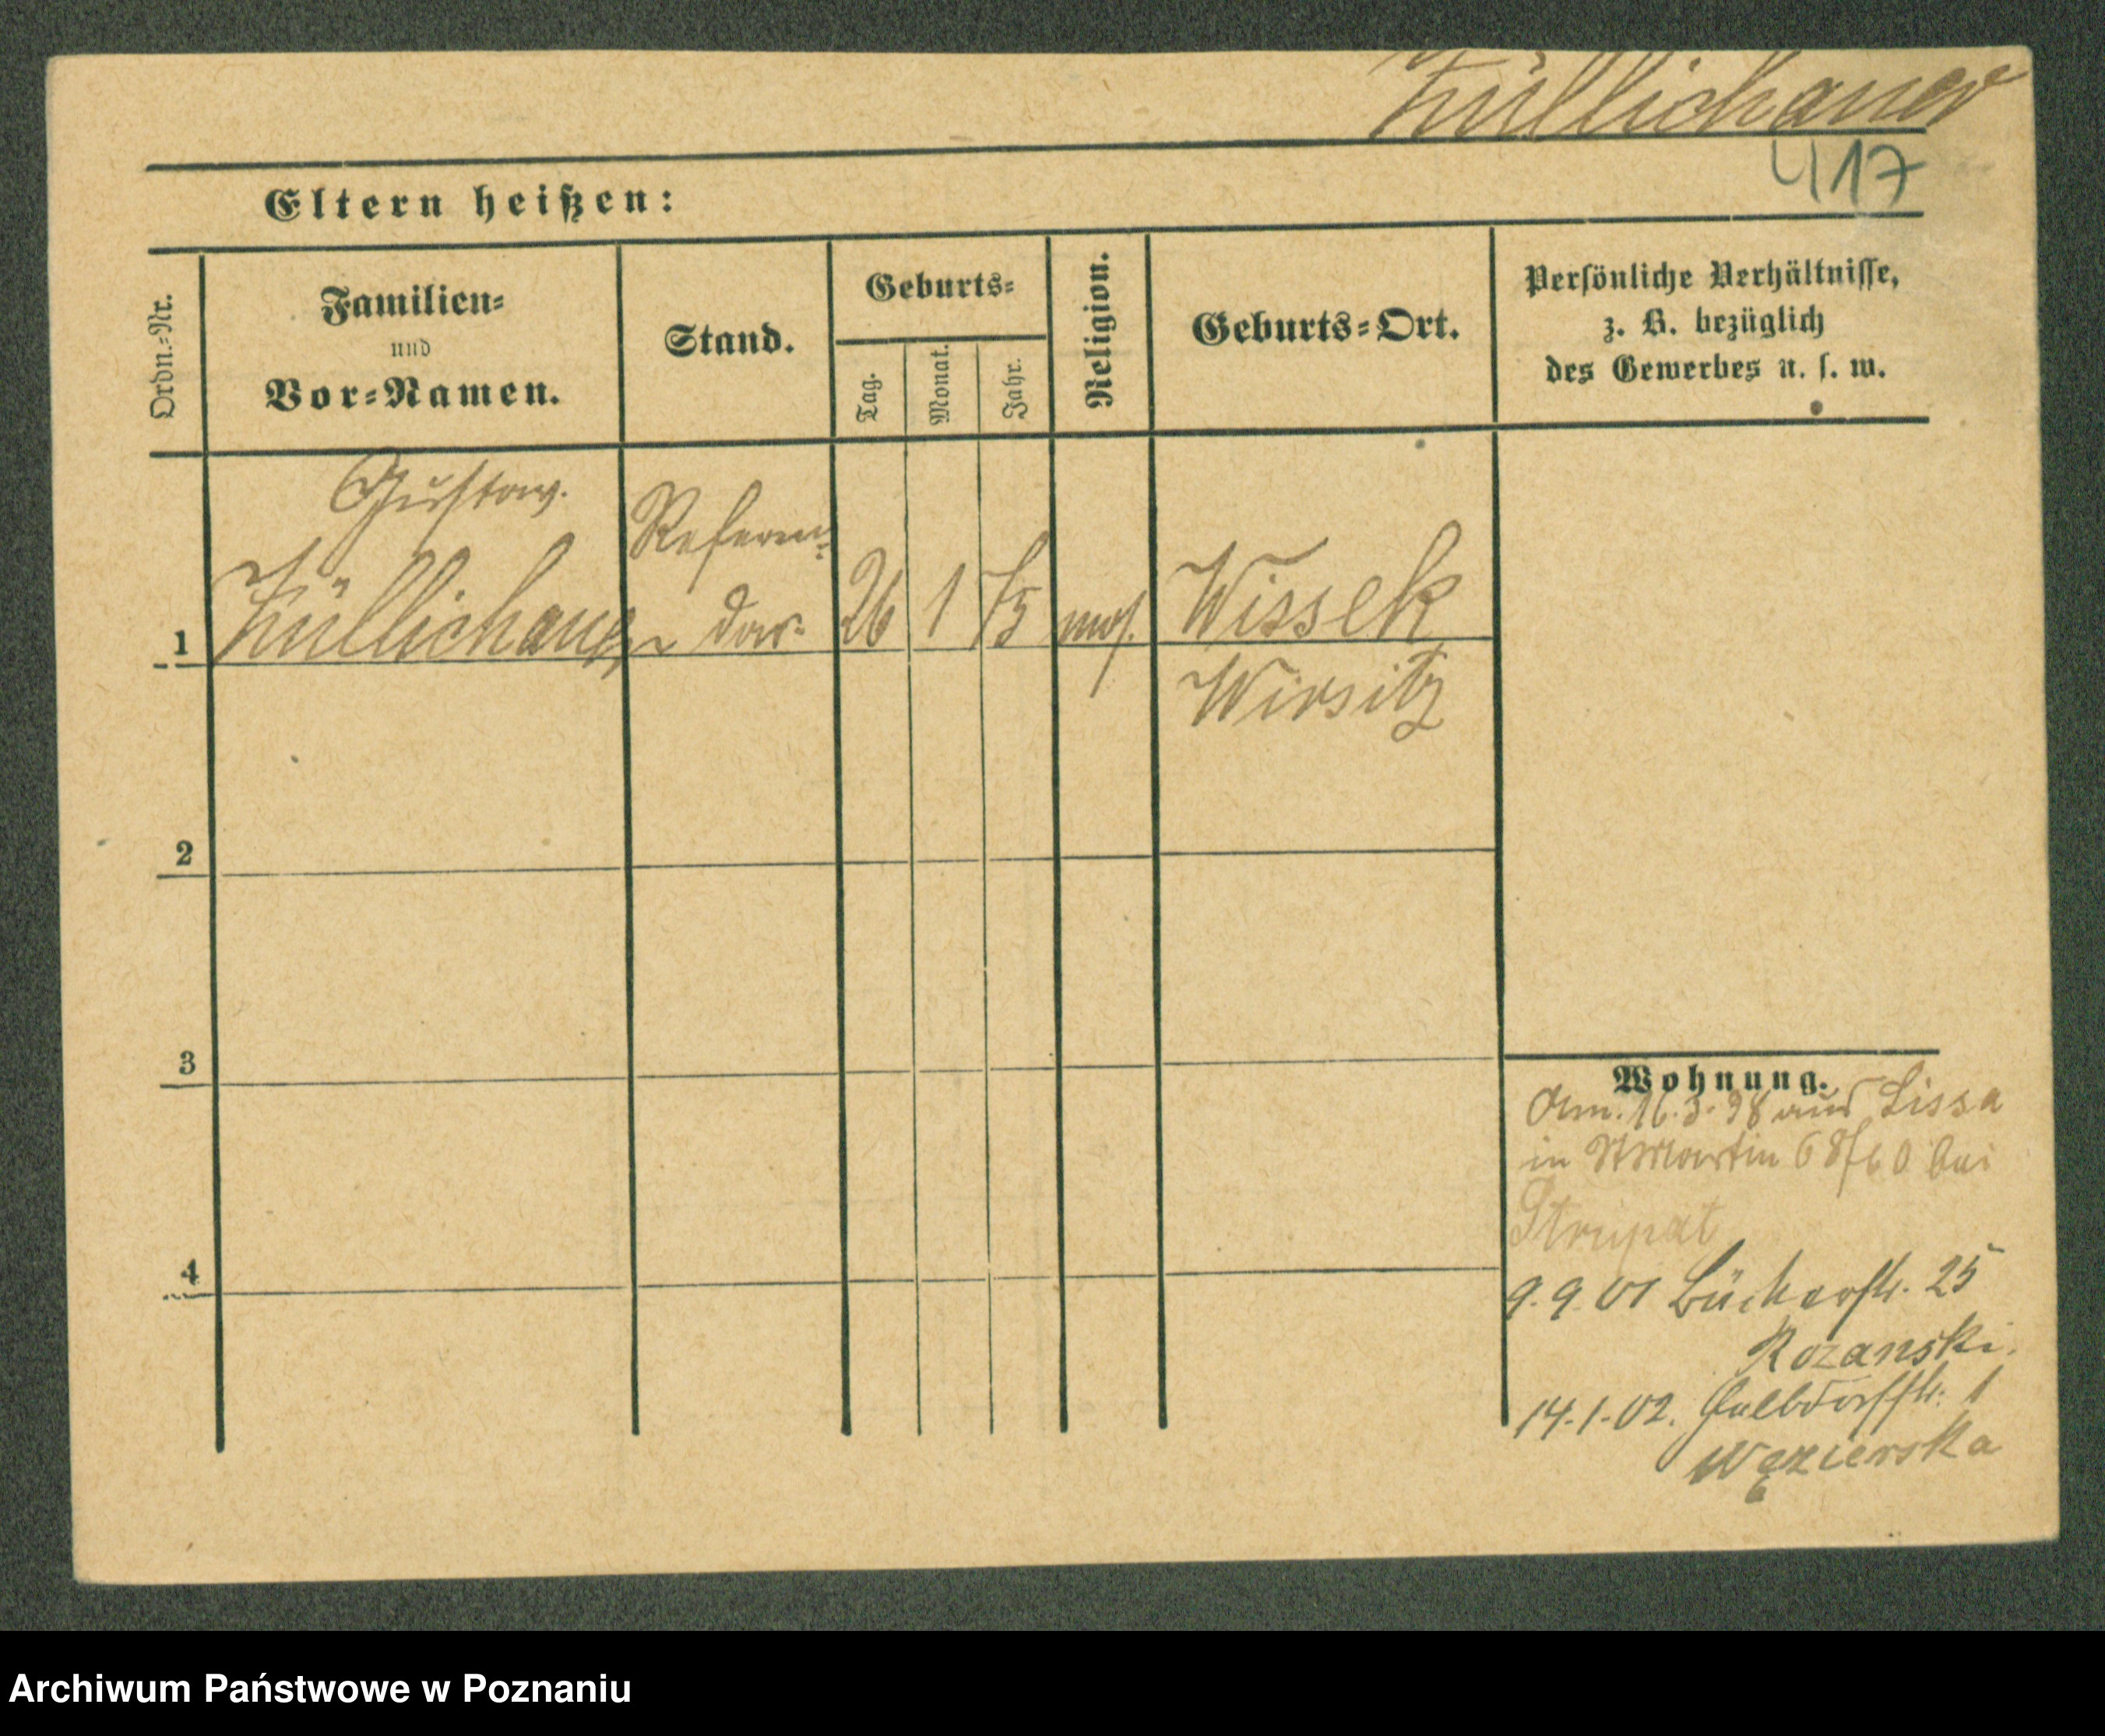 Züllichauer
417
Eltern heißen:
Ordn.-Nr.
Familien-
und
Vor-Namen.
Stand.
Geburts-
Tag.
Monat.
Jahr.
Religion.
Geburts-Ort.
Persönliche Verhältnisse,
z. B. bezüglich
des Gewerbes u. s. w.
1
Gustav.
Züllichauer
Referen-
dar.
26
1
75
mos.
Wissek
Wirsitz
2
3
4
Wohnung.
Anm. 16.3.98 aus Lissa
in St Martin 68/60 bei
9.9.01 Bücherstr. 25
Rozanski.
14.1.02. Halbdorfstr. 1
Węzierska
Archiwum Państwowe w Poznaniu